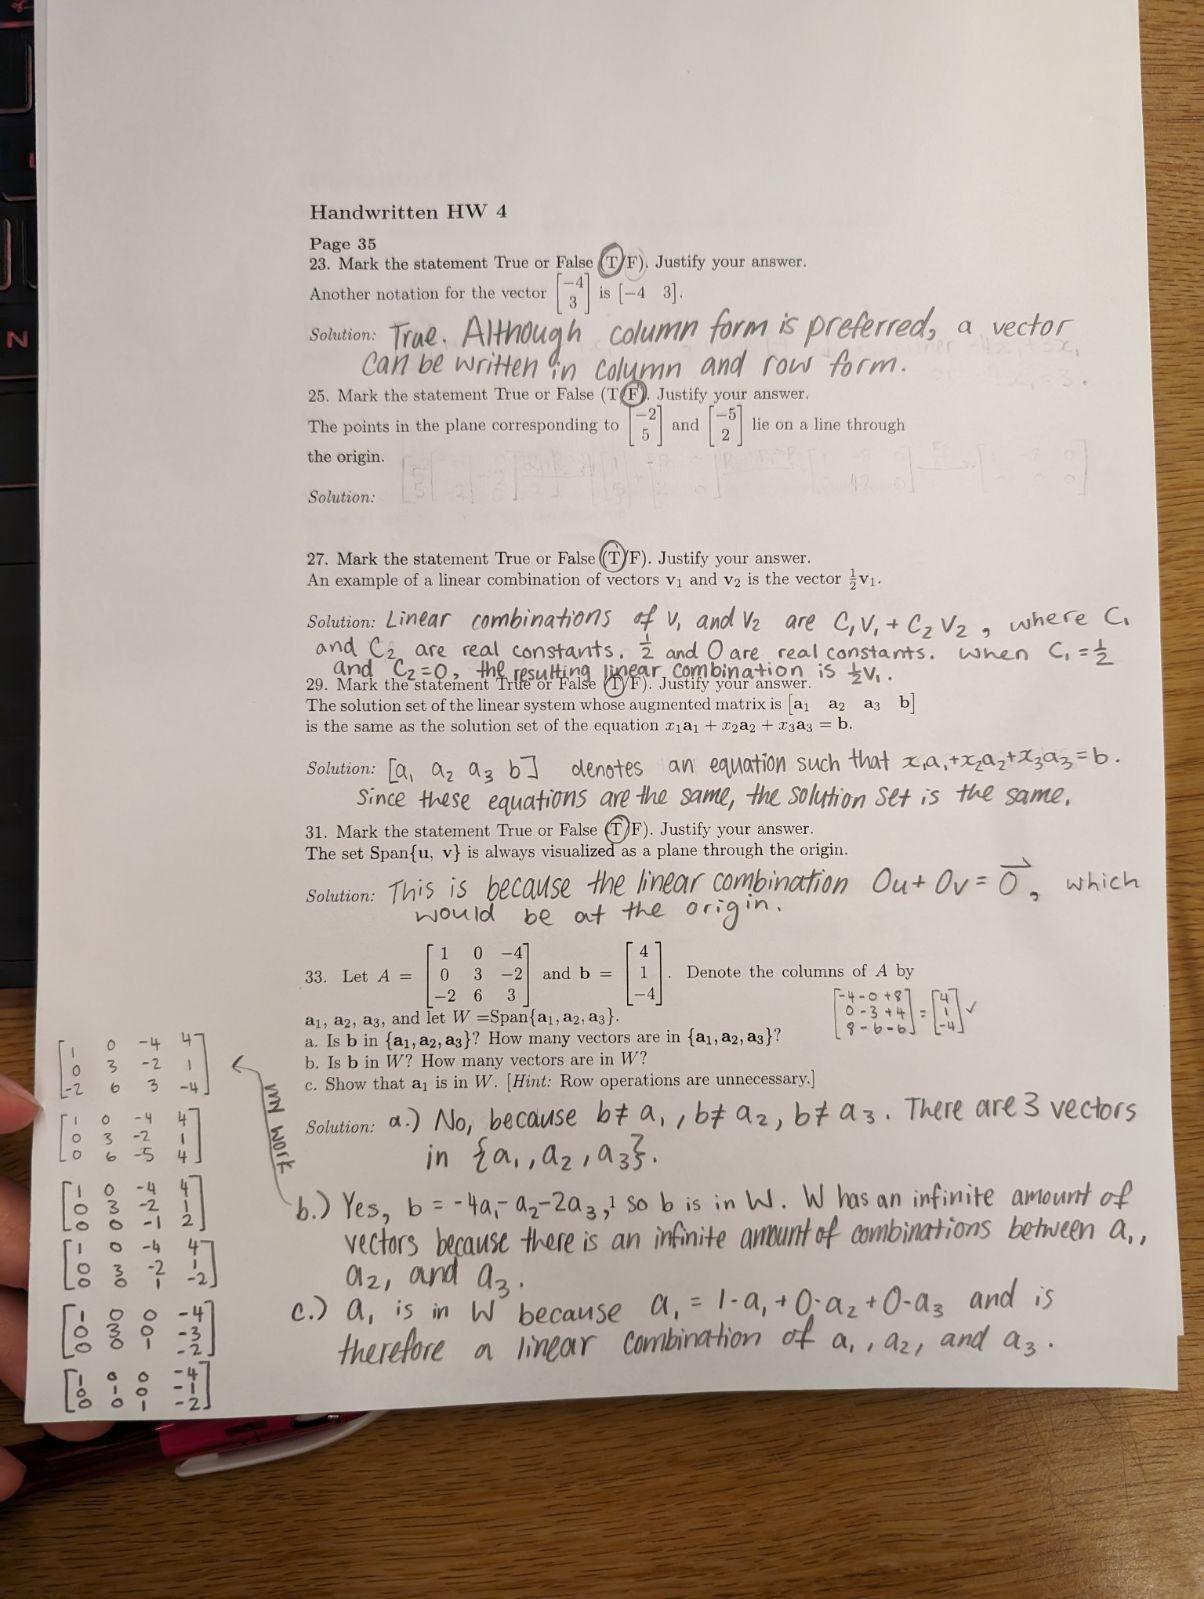 Handwritten HW 4
Page 35
23. Mark the statement True or False (T/F). Justify your answer.
Another notation for the vector [−4 3] is [−4 3].
Solution: True. Although column form is preferred, a vector
can be written in column and row form.
25. Mark the statement True or False (T/F). Justify your answer.
The points in the plane corresponding to [−2 5] and [−5 2] lie on a line through
the origin.
Solution:
27. Mark the statement True or False (T/F). Justify your answer.
An example of a linear combination of vectors v₁ and v₂ is the vector ½v₁.
Solution: Linear combinations of V₁ and V₂ are C₁V₁ + C₂V₂, where C₁
and C₂ are real constants. ½ and 0 are real constants. when C₁ = ½
and C₂=0, the resulting linear combination is ½V₁.
29. Mark the statement True or False (T/F). Justify your answer.
The solution set of the linear system whose augmented matrix is [a₁ a₂ a₃ b]
is the same as the solution set of the equation x₁a₁ + x₂a₂ + x₃a₃ = b.
Solution: [a₁ a₂ a₃ b] denotes an equation such that x₁a₁+x₂a₂+x₃a₃=b.
Since these equations are the same, the solution set is the same.
31. Mark the statement True or False (T/F). Justify your answer.
The set Span{u, v} is always visualized as a plane through the origin.
Solution: This is because the linear combination 0u + 0v = 0⃗, which
would be at the origin.
33. Let A = [1 0 −4; 0 3 −2; −2 6 3] and b = [4; 1; −4]. Denote the columns of A by
a₁, a₂, a₃, and let W =Span{a₁, a₂, a₃}.
[-4-0+8; 0-3+4; 8-6-6] = [4; 1; -4] ✓
a. Is b in {a₁, a₂, a₃}? How many vectors are in {a₁, a₂, a₃}?
b. Is b in W? How many vectors are in W?
c. Show that a₁ is in W. [Hint: Row operations are unnecessary.]
Solution: a.) No, because b≠a₁, b≠a₂, b≠a₃. There are 3 vectors
in {a₁, a₂, a₃}.
b.) Yes, b = -4a₁-a₂-2a₃, so b is in W. W has an infinite amount of
vectors because there is an infinite amount of combinations between a₁,
a₂, and a₃.
c.) a₁ is in W because a₁ = 1·a₁ + 0·a₂ + 0·a₃ and is
therefore a linear combination of a₁, a₂, and a₃.
my work
1 0 -4 4
0 3 -2 1
-2 6 3 -4
1 0 -4 4
0 3 -2 1
0 6 -5 4
1 0 -4 4
0 3 -2 1
0 0 -1 2
1 0 -4 4
0 3 -2 1
0 0 1 -2
1 0 0 -4
0 3 0 -3
0 0 1 -2
1 0 0 -4
0 1 0 -1
0 0 1 -2
N